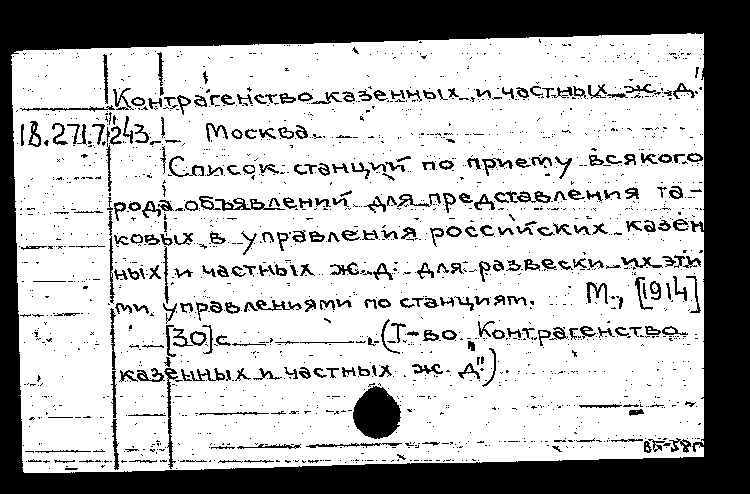 Контрагенство казенных и частных ж.д."
18.271.7.243. Москва.
Список станций по приему всякого
рода объявлений для представления та-
ковых в управления российских казен
ных и частных ж.д. для развески их эти
ми управлениями по станциям. М., [1914]
[30]с. (Т-во „Контрагенство
казенных и частных ж. д.")